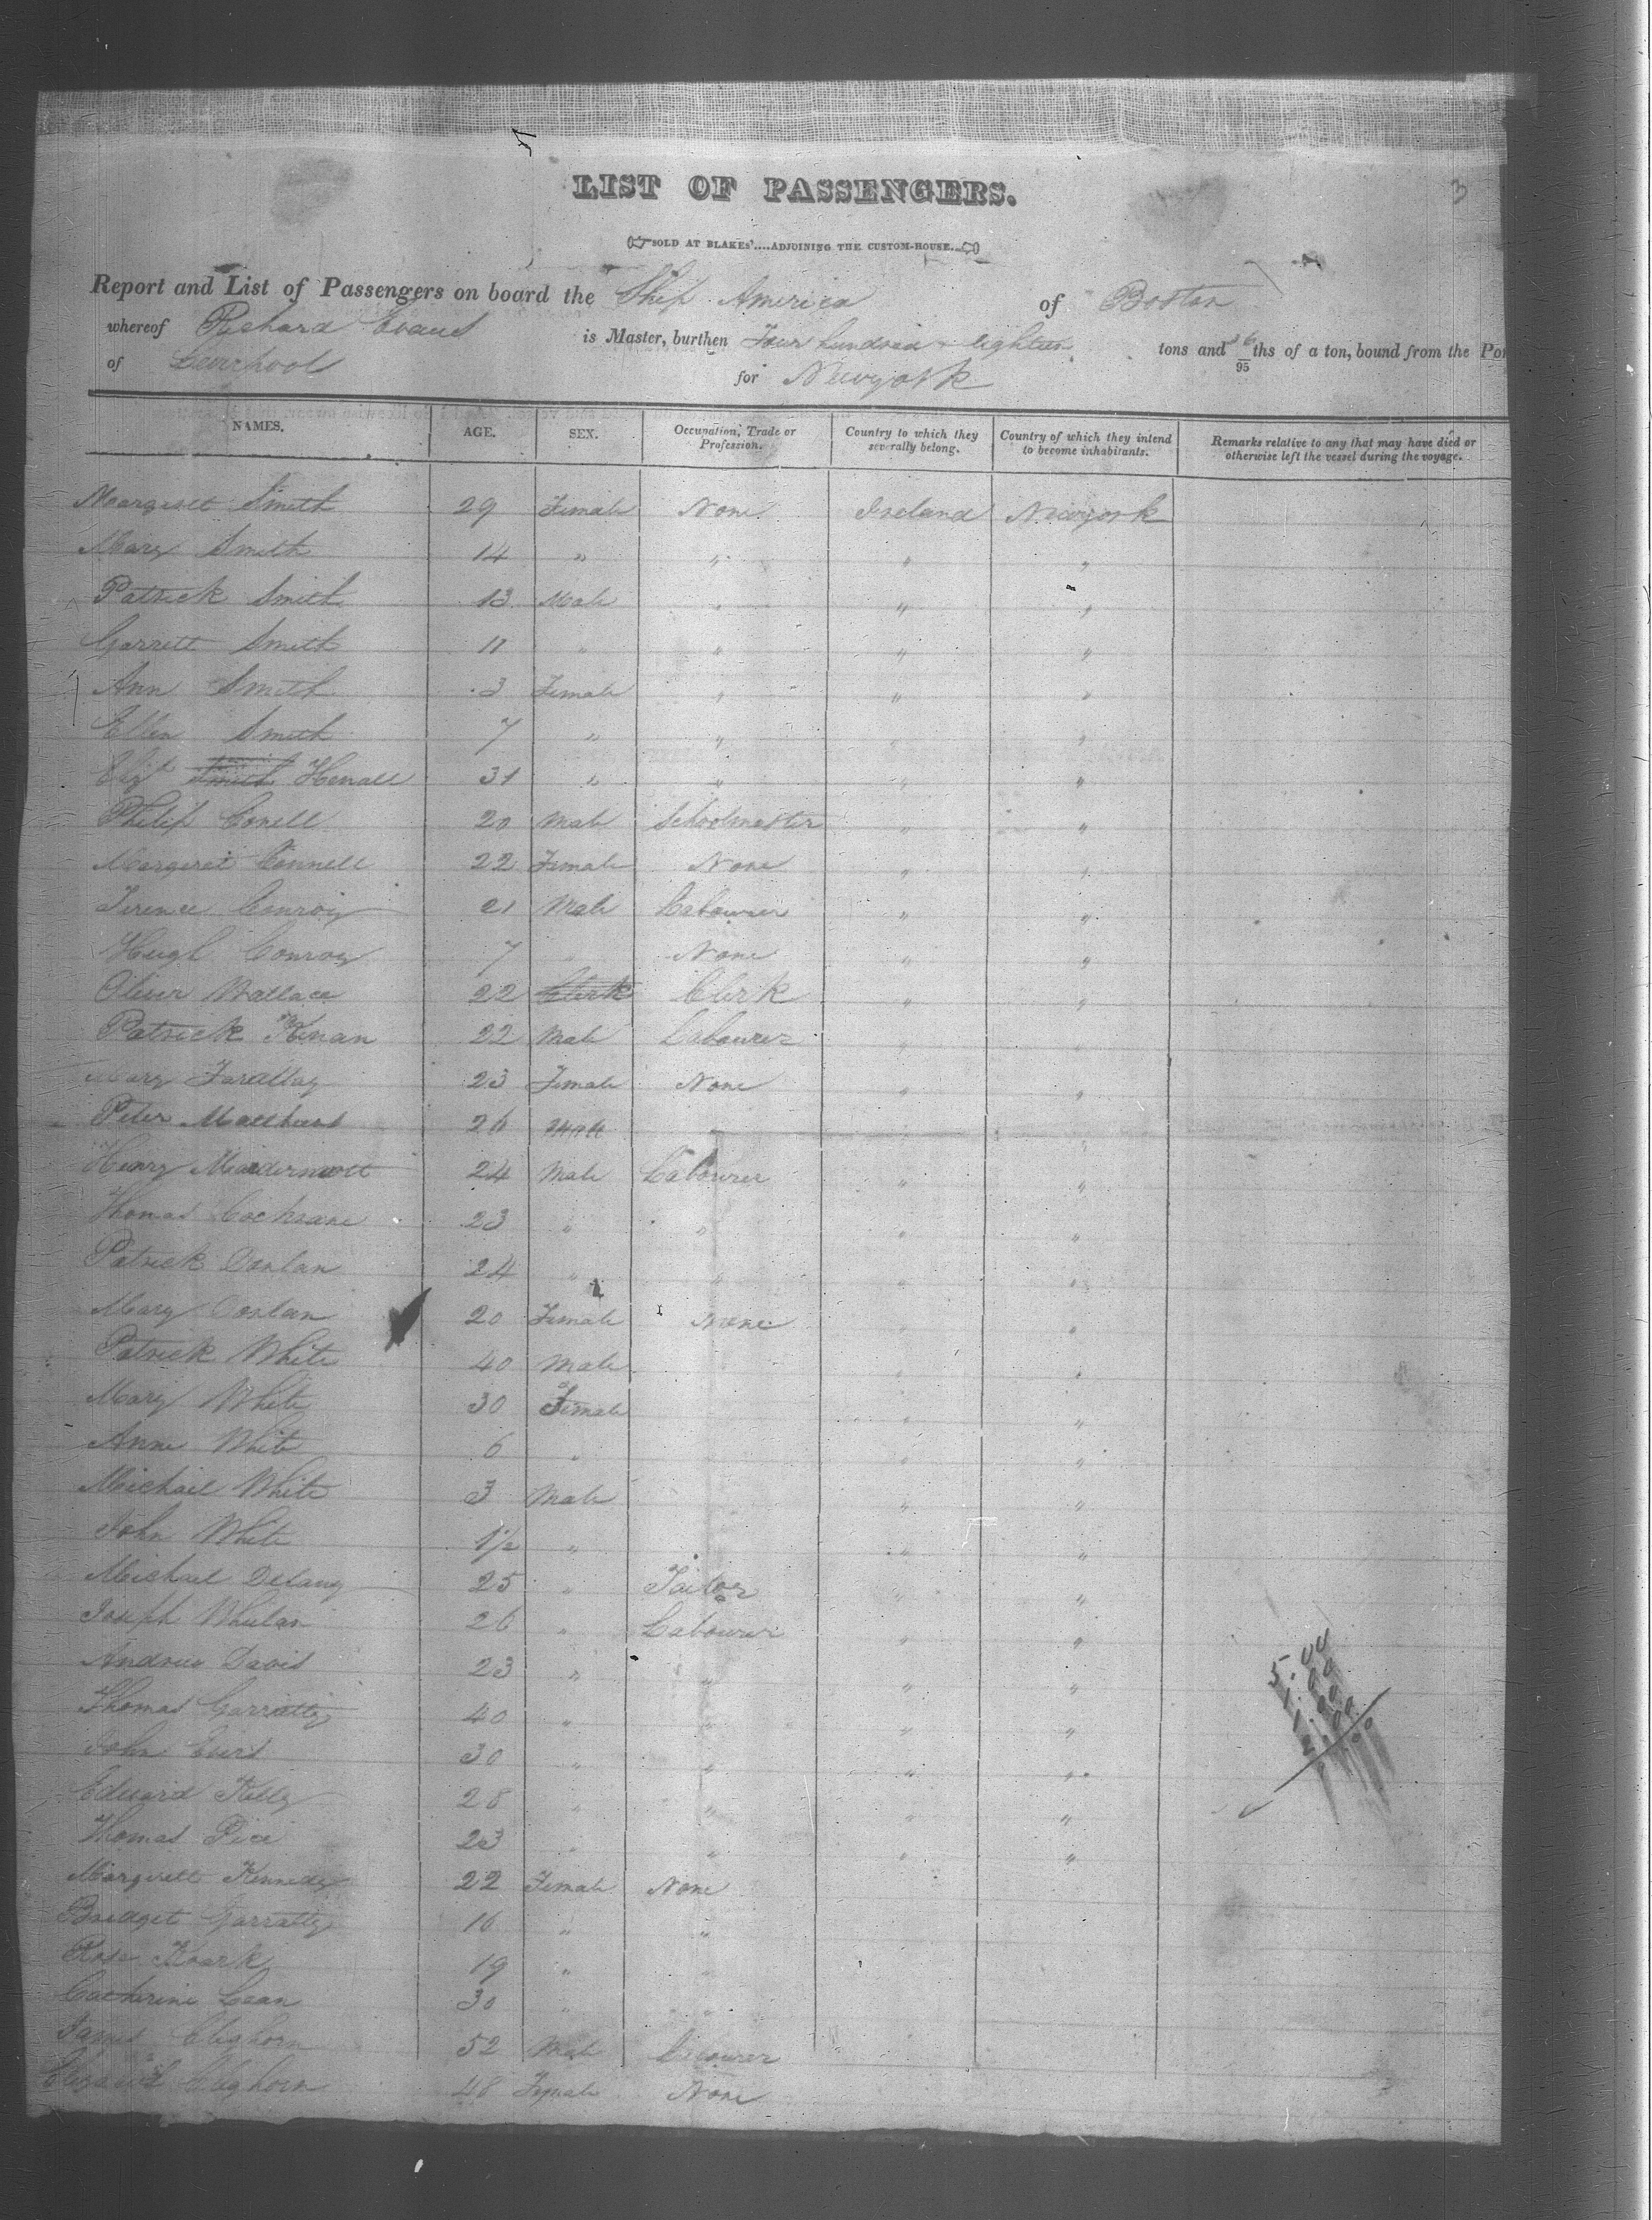 3
LIST OF PASSENGERS.
SOLD AT BLAKES'....ADJOINING THE CUSTOM-HOUSE.
Report and List of Passengers on board the Ship America of Boston
whereof Richard Evans is Master, burthen Four hundred & Eighteen tons and 36/95 ths of a ton, bound from the Por
of Leverpool for Newyork
NAMES. AGE. SEX. Occupation, Trade or Profession. Country to which they severally belong. Country of which they intend to become inhabitants. Remarks relative to any that may have died or otherwise left the vessel during the voyage.
Margarett Smith 29 Female None Ireland Newyork
Mary Smith 14 " " " "
Patrick Smith 13 Male " " "
Garrett Smith 11 " " " "
Ann Smith 3 Female " " "
Ellen Smith 7 " " " "
Elizt Smith 31 " " " "
Philip Conell 20 Male Schoolmaster " "
Margaret Connell 22 Female None " "
Terence Conroy 21 Male Labourer " "
Hugh Conroy 7 " None " "
Oliver Wallace 22 Clerk Clerk " "
Patrick Kinan 22 Male Labourer " "
Mary 23 Female None " "
Peter Matthews 26 Male " " "
Henry Macdermott 24 Male Labourer " "
Thomas Cochrane 23 " " " "
Patrick Donlan 24 " " " "
Mary Donlan 20 Female None " "
Patrick White 40 Male " "
Mary White 30 Female " "
Anne White 6 " " "
Michael White 3 Male " "
John White 1½ " " "
Michael Delany 25 " Tailor " "
Joseph Whelan 26 " Labourer " "
Andrew Davis 23 " " " "
Thomas Garratty 40 " " " "
John 30 " " " "
Edward Kelly 28 " " " "
Thomas Pice 23 " " " "
Margarett Kennedy 22 Female None
Bridget Garratty 16 " "
Rose Roark 19 " "
Catherine Lean 30 " "
James Cleghorn 52 Male Labourer
Cleghorn 48 Female None